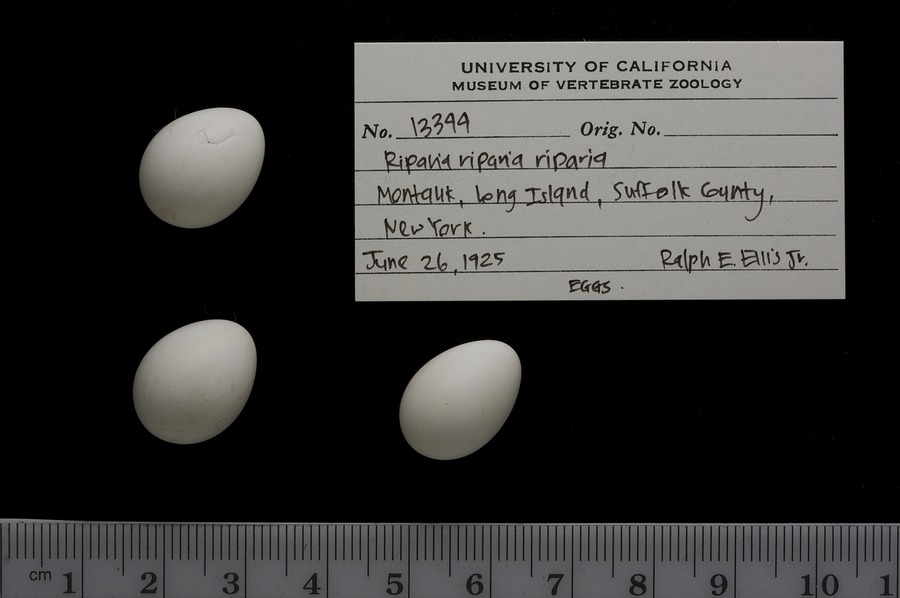 UNIVERSITY OF CALIFORNIA
MUSEUM OF VERTEBRATE ZOOLOGY
No. 13399 Orig. No.
Riparia riparia riparia
Montauk, Long Island, Suffolk County,
New York.
June 26, 1925 Ralph E. Ellis Jr.
EGGS.
cm 1 2 3 4 5 6 7 8 9 10 1